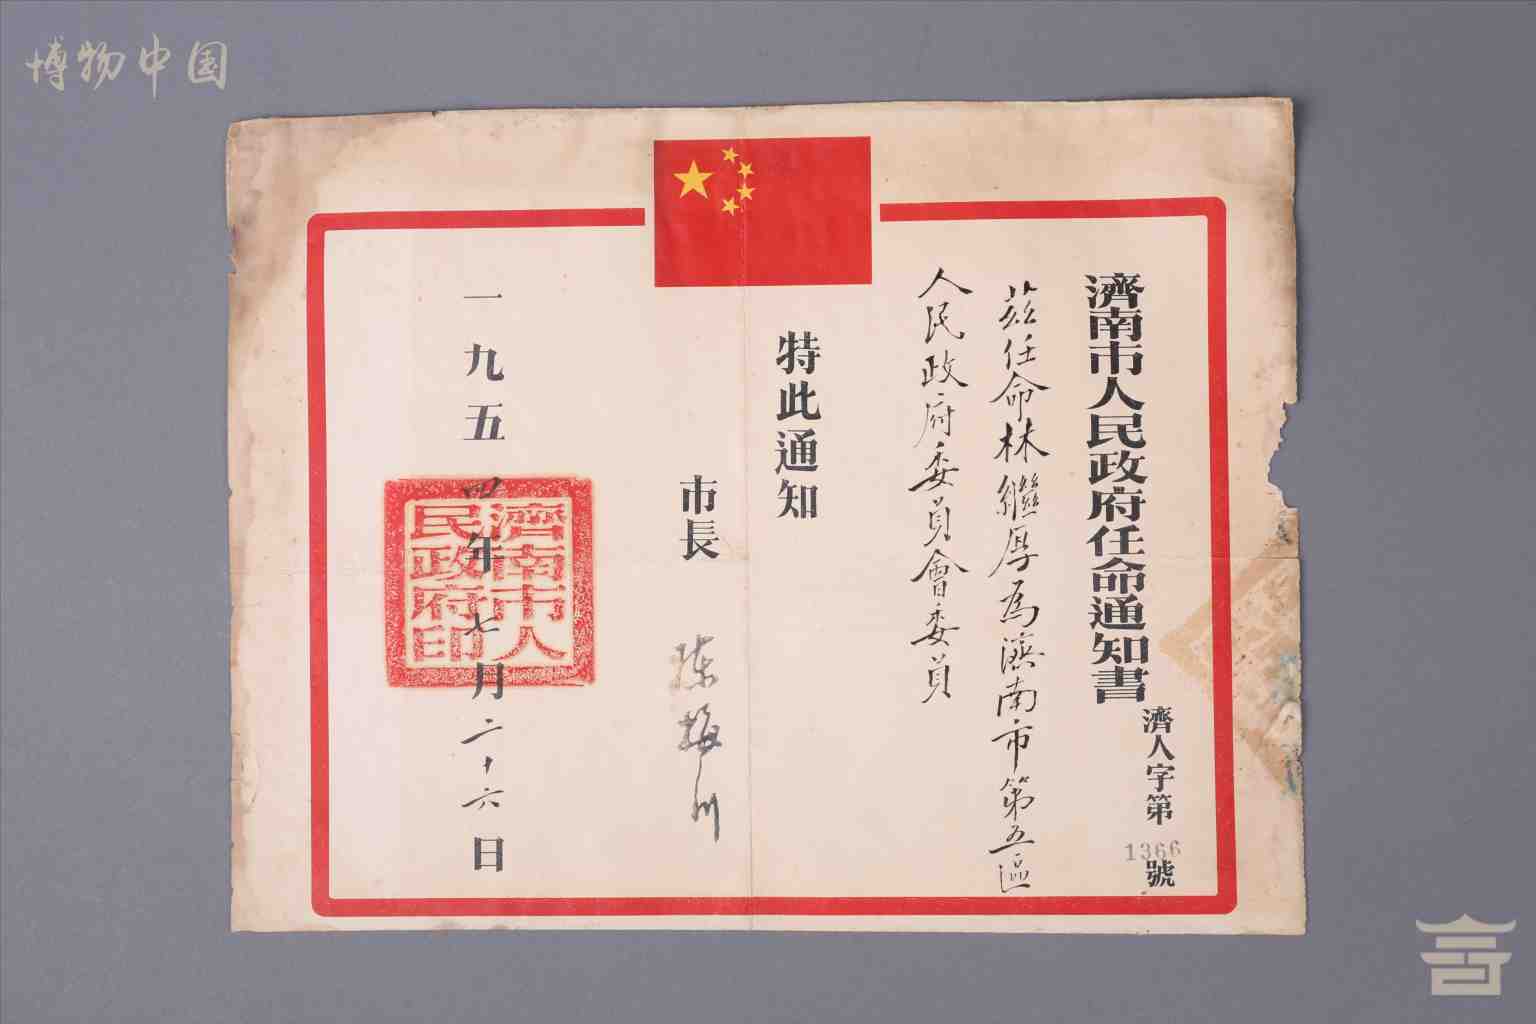 博物中国
濟南市人民政府任命通知書
濟人字第1366號
茲任命林繼厚為濟南市第五區
人民政府委員會委員
特此通知
市長 陳梅川
一九五四年七月二十六日
濟南市人
民政府印